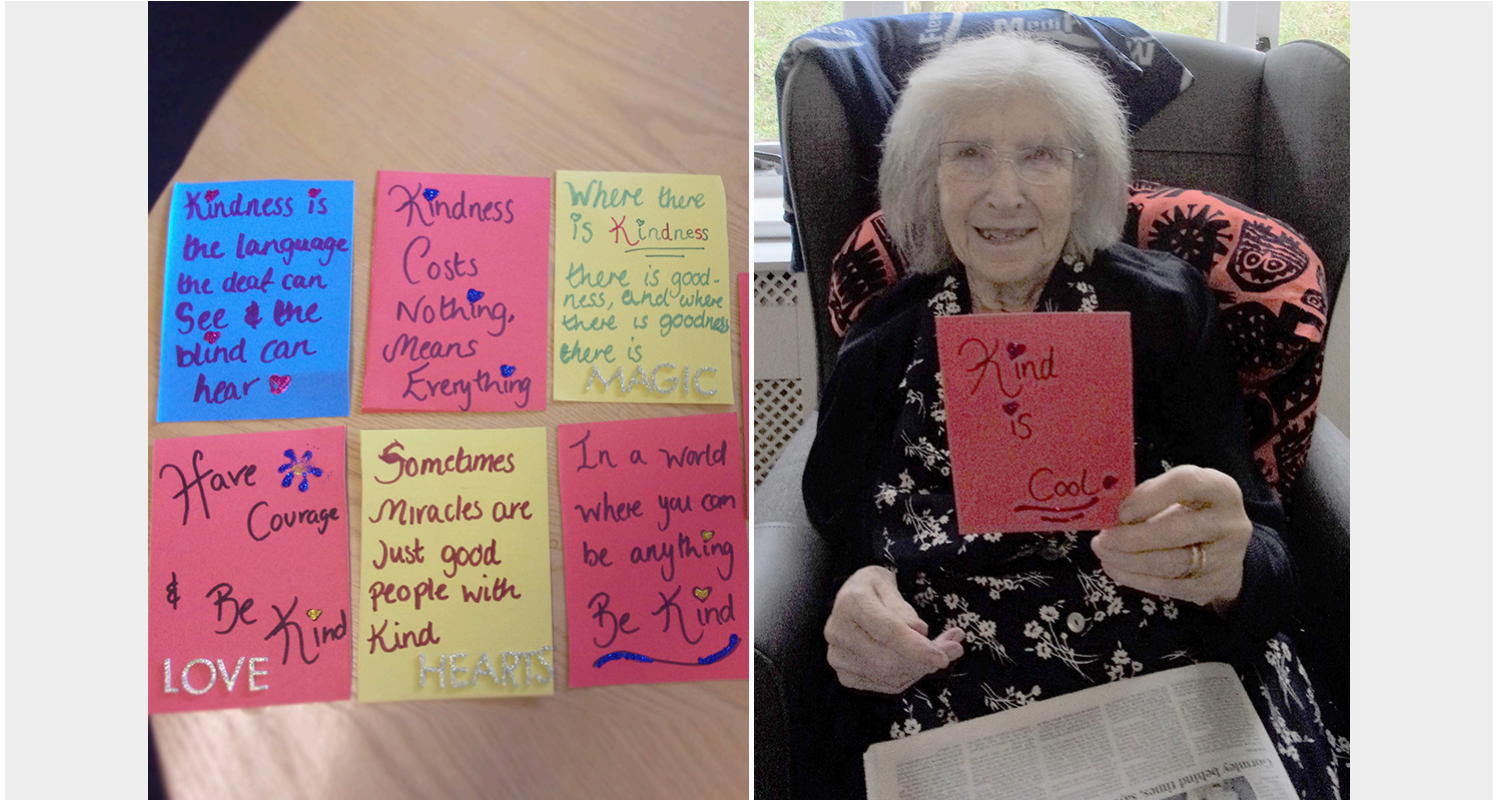 Kindness is
the language
the deaf can
See & the
blind can
hear
Kindness
Costs
Nothing,
Means
Everything
Where there
is Kindness
there is good-
ness, and where
there is goodness
there is
MAGIC
Have
Courage
& Be
Kind
LOVE
Sometimes
Miracles are
Just good
people with
Kind
HEARTS
In a world
where you can
be anything
Be Kind
Kind
is
Cool
Gormley behind times, sa